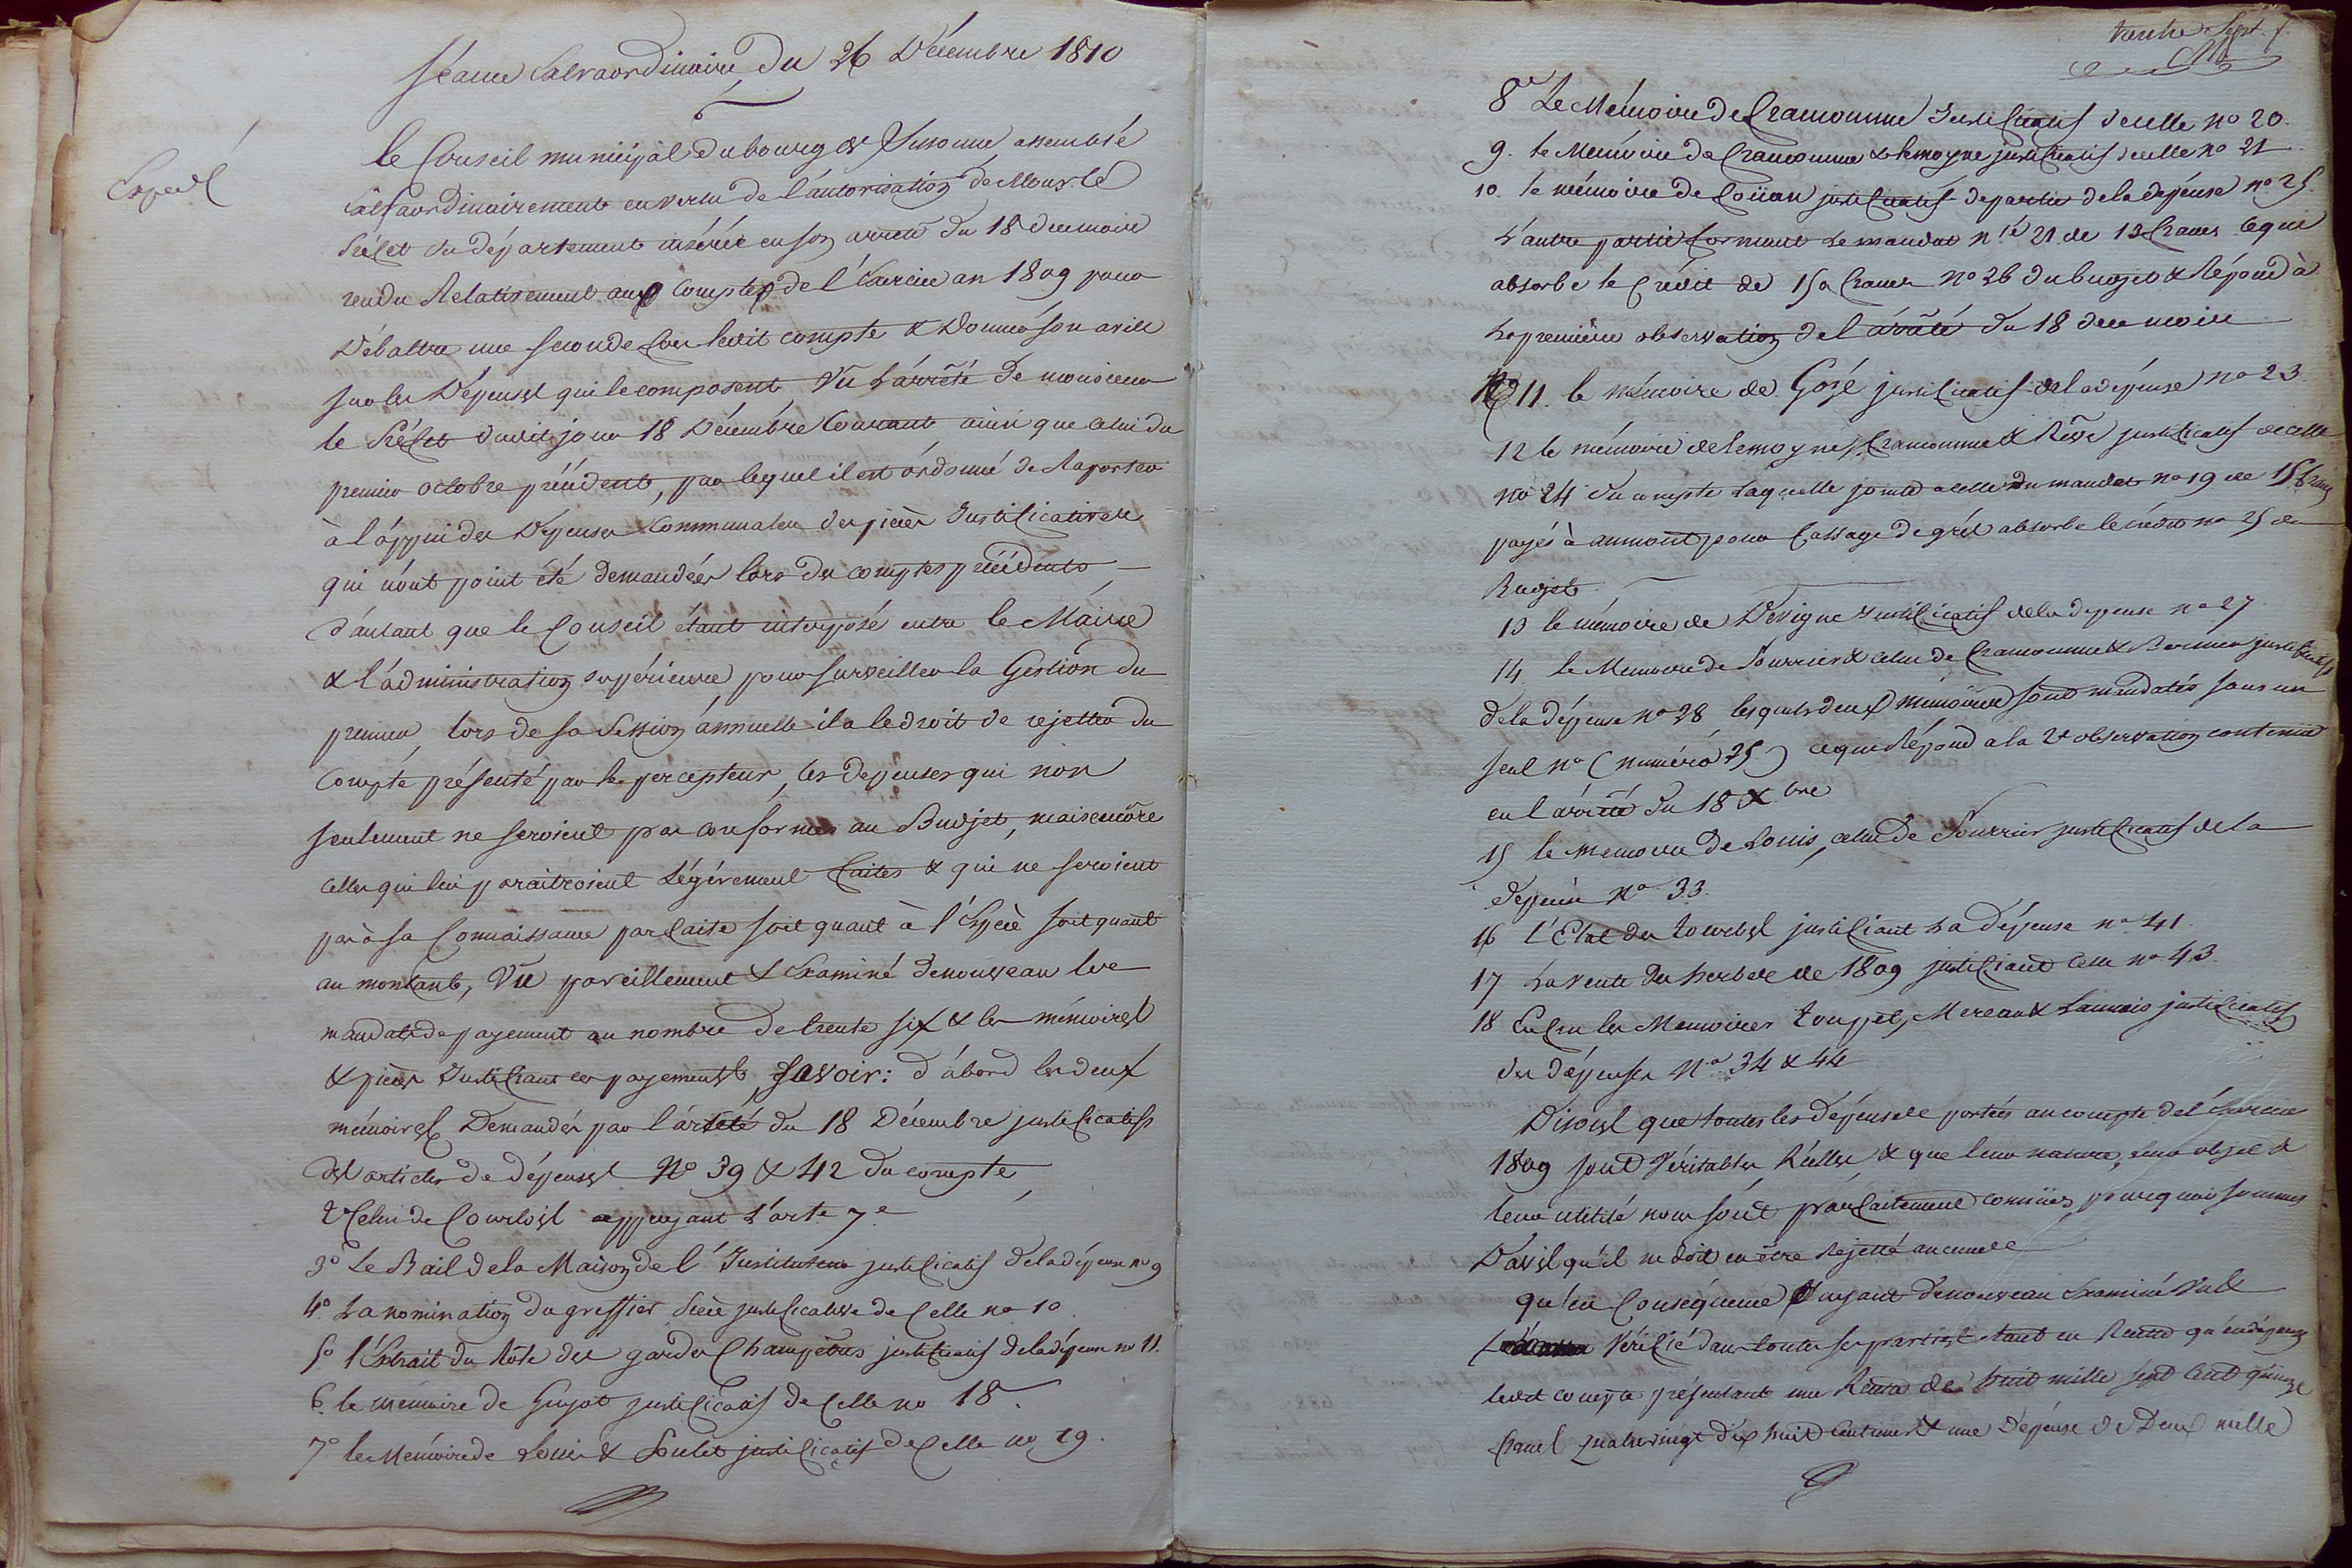 Séance Extraordinaire du 26 Décembre 1810
Expedié
le Conseil municipal du bourg de assemblé
Extraordinairement en vertu de l'autorisation de Monsr. le
Préfet du département insérée en son arrete du 18 decembre
rendu Relativement aux Comptes de l'Exercice an 1809 pour
Débattre une seconde fois ledit compte & Donner son avis
sur les Dépenses qui le composent, Vû L'arrêté de monsieur
le Préfet dudit jour 18 Décembre Courant ainsi que celui du
premier octobre précédent, par lequel il est ordonné de Raporter
à l'appui des Depenses Communales des pieces Justificatives
qui n'ont point été demandées lors des comptes précédents,
d'autant que le Conseil étant interposé entre le Maire
& l'administration supérieure pour surveiller la Gestion du
premier, lors de sa Session annuelle il a le droit de rejetter du
Compte présenté par le percepteur, les depenses qui non
seulement ne seroient pas conformes au Budjet, mais encôre
celles qui lui paraitroient Légérement faites & qui ne seroient
pas à sa Connaissance parfaite soit quant à l'Espece soit quant
au montant, Vû pareillement & Examiné denouveau les
mandats de payement au nombre de trente six & les mémoires
& pieces Justifiant ces payements, Savoir: d'abord les deux
mémoires Demandés par l'arrêté du 18 Décembre justificatifs
des articles de dépenses No 39 & 42 du compte
2° Celui de Courtois appuyant L'art. 7e
3° Le Bail de la Maison de l'Instituteur justificatif de la dépense no 9
4° La nomination du greffier Piece justificative de Celle no 10
5° l'Extrait du Rôle des gardes Champêtres justificatif de la dépense no 11.
6. le mémoire de Guyot justificatif de Celle no 18.
7° le Mémoire de Louis & Poulet justificatif de Celle no 19.
trente Sept. f.
8° Le Mémoire de Cramounne Justificatif de celle no 20.
9. le Memoire de Cramounne & Lemoyne justificatif de celle no 21
10. le mémoire de justificatif de partie de la depense no 25.
L'autre partie formant le mandat n° 21 de 12 francs ce que
absorbe le Crédit de 150 francs No 26 du budjet & Répond à
la première observation de l'arrêté du 18 decembre
11. le mémoire de Gozé justificatif de la dépense no 23
12 le mémoire de lemoyne, Cramounne & justificatif de celle
no 24 du compte Laquelle jointe à celle du mandat no 19 de 15 francs
payés à aumont pour Cassage de grés absorbe le crédit no 25 du
Budjet.
13 le mémoire de Devigne Justificatif de la depense no 27
14 le Memoire de Fourrier & celui de Cramounne & justificatifs
de la dépense no 28 lesquels deux mémoires sont mandatés sous un
seul no (numéro 25) ce qui Répond a la 2e observation contenue
en l'arrêté du 18 Xbre
15 le memoire de Louis, celui de Fourrier justificatif de la
dépense No 33.
16 L'Etat des tourbes justifiant La dépense no 41.
17 La vente des herbes de 1809 justifiant Celle no 43.
18 Enfin les Memoires Toupet, Mereau & Lannois justificatifs
des dépenses No 34 & 44
Disons que toutes les dépenses portées au compte de l'Exercice
1809 sont Véritables, Réelles, & que leur nature, leur objet &
leur utilité nous sont parfaitement connues, pourquoi sommes
D'avis qu'il ne doit en être Rejetté aucune
qu'en Conséquence ayant denouveau Examiné
Vérifié dans toutes ses parties tant en Recette qu'en dépense
ledit compte présentant une Recette de huit mille sept cent quinze
francs quatrevingt dix huit centimes & une Dépense de Deux mille